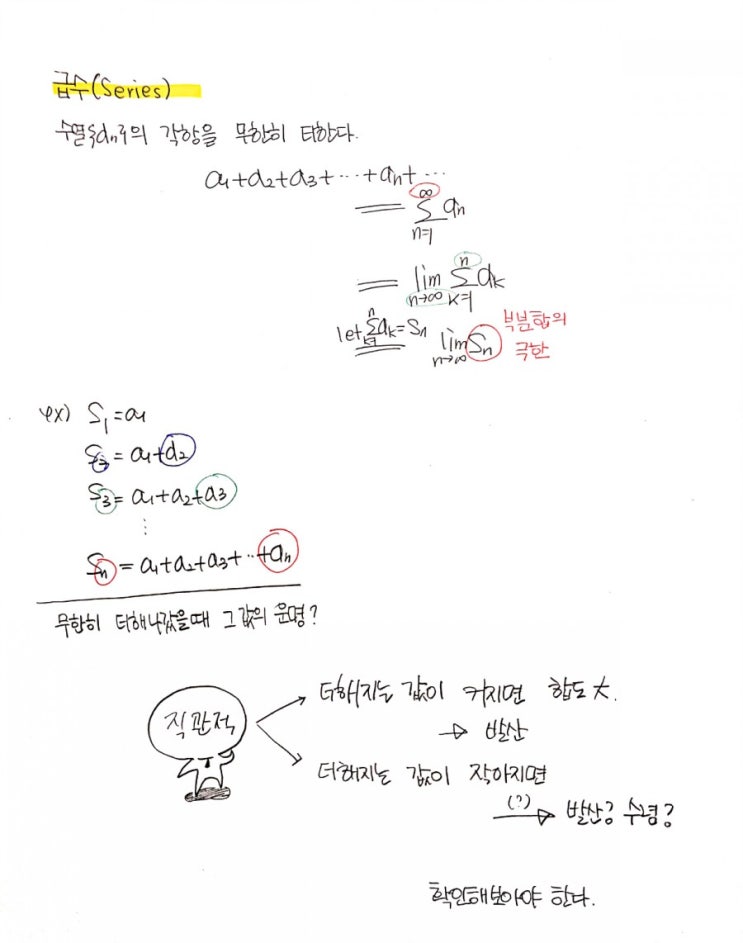 급수(Series)
수열{an}의 각항을 무한히 더한다.
a1+a2+a3+⋯+an+⋯
= ∑_{n=1}^{∞} an
= lim_{n→∞} ∑_{k=1}^{n} ak
let ∑_{k=1}^{n} ak = Sn lim_{n→∞} Sn 부분합의
극한
ex) S1 = a1
S2 = a1+a2
S3 = a1+a2+a3
⋮
Sn = a1+a2+a3+⋯+an
무한히 더해나갔을때 그 값의 운명?
직관적
더해지는 값이 커지면 합도 大.
→ 발산
더해지는 값이 작아지면
(?) → 발산? 수렴?
확인해보아야 한다.